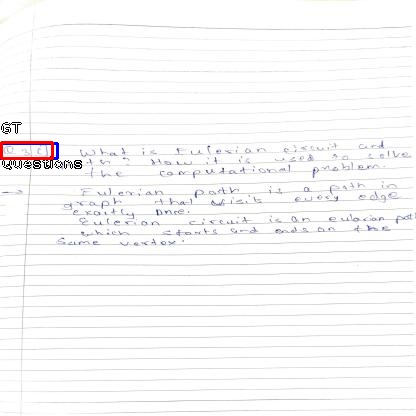 GT
Questions
What is Eulerian circuit and
How it is used to solve
the computational problem.
→ Eulerian path is a path in
graph that visits every edge
exactly once.
Eulerian circuit is an eularian path
which starts and ends on the
same vertex.